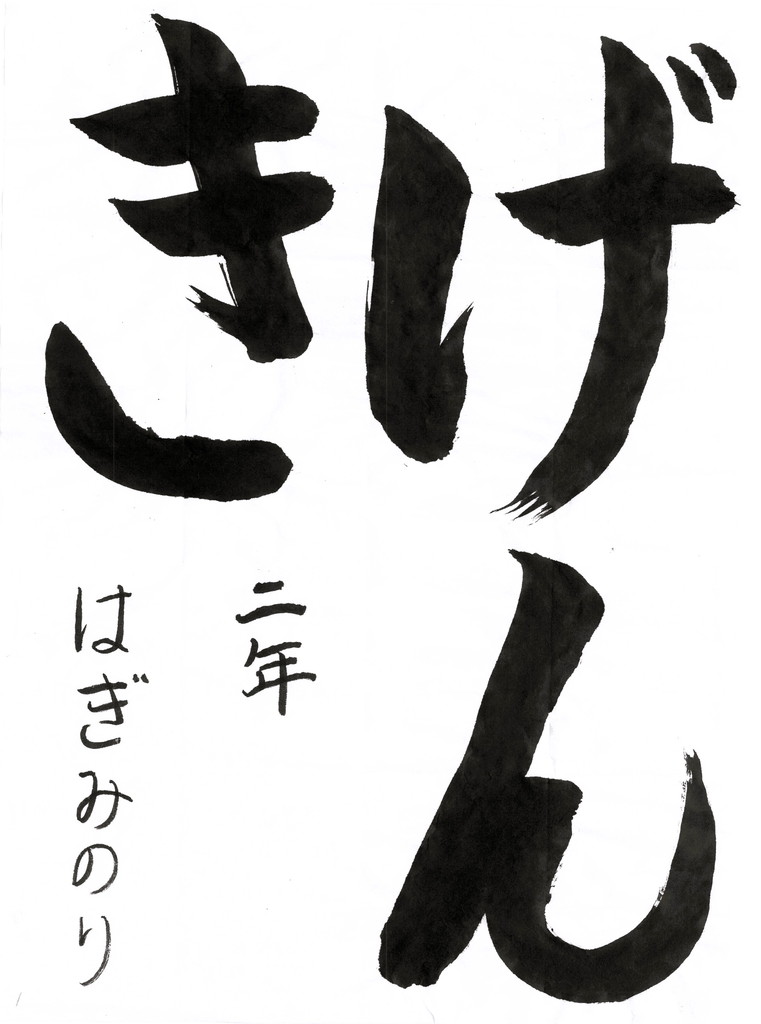 げん
き
二年
はぎみのり